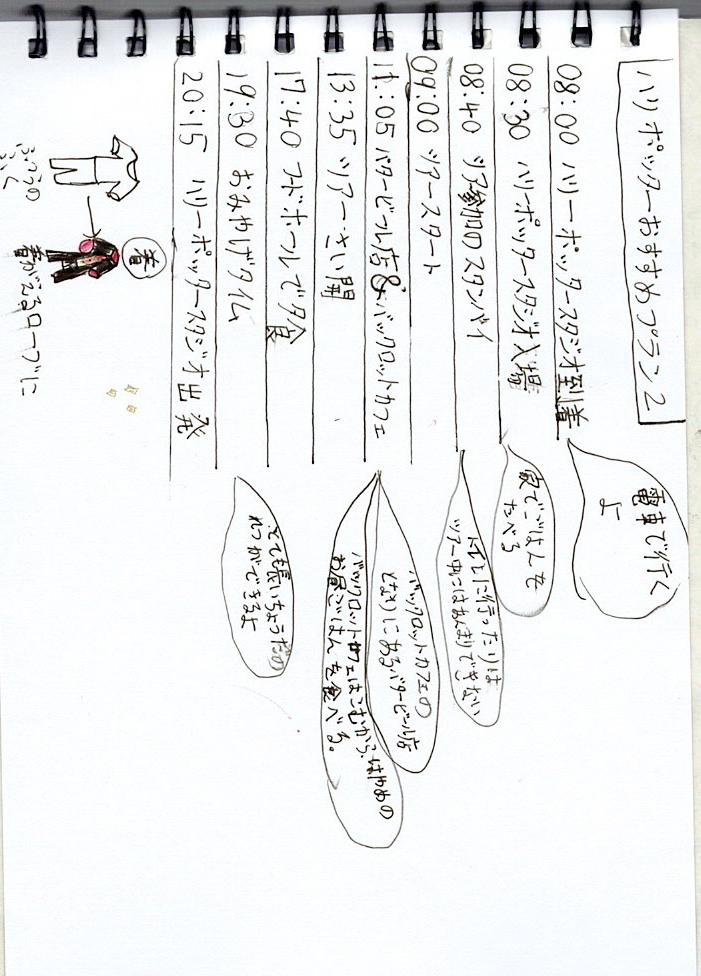 ハリーポッターおすすめプラン2
08:00 ハリーポッタースタジオ到着
電車で行くよ
08:30 ハリーポッタースタジオ入場
家でごはんを
たべる
08:40 ツアー参加のスタンバイ
トイレに行ったりは
ツアー中にはあんまりできない
09:00 ツアースタート
11:05 バタービール店&バックロットカフェ
バックロットカフェの
となりにあるバタービール店
バックロットカフェはこむから、はやめの
お昼ごはんを食べる。
13:35 ツアーさい開
17:40 フードホールで夕食
19:30 おみやげタイム
とても長いちょうだの
れつができるよ
20:15 ハリーポッタースタジオ出発
着
ふつうの
ふく
着がえるローブに